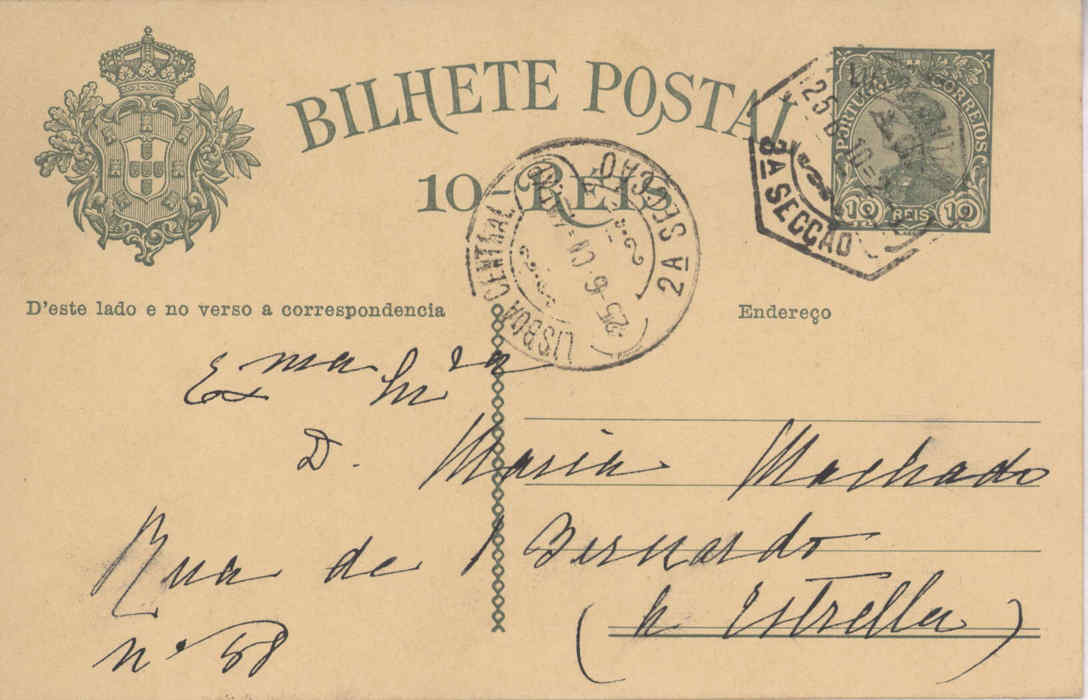 BILHETE POSTAL
10-REIS
PORTUGAL CORREIOS
10 REIS 10
25 6 10
3A SECÇÃO
LISBOA CENTRAL
2A SECÇÃO
25-6-10
D'este lado e no verso a correspondencia
Endereço
Exma Snra
D. Maria Machado
Rua de S Bernardo
(á Estrella)
nº 58